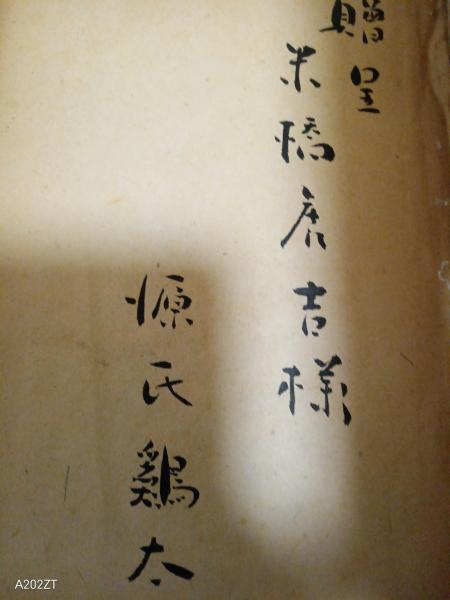 贈呈
米橋唐吉様
源氏鶏太
A202ZT